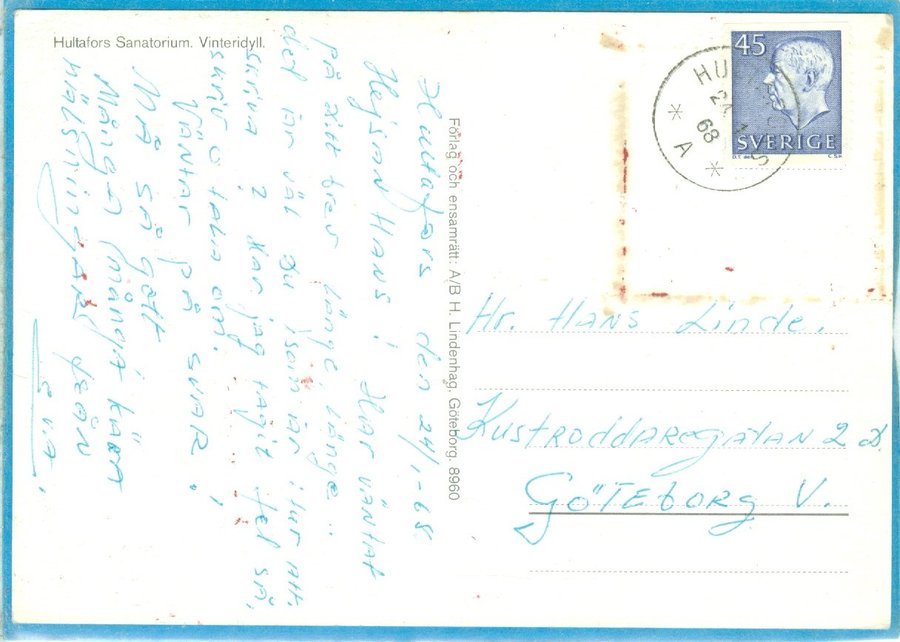 Hultafors Sanatorium. Vinteridyll.
Hultafors den 24/1-68.
Hejsan Hans! Har väntat
på ditt brev länge, länge..
det är väl du som är i tur att.
skriva? Har jag tagit fel så,
skriv o tala om.
Väntar på svar!
Må så gott
Många (många) kära
hälsningar från
Eva.
Förlag och ensamrätt: A/B H. Lindenhag, Göteborg. 8960
45
SVERIGE
HU
24 1
68
A
S
Hr. Hans Linde.
Kustroddaregatan 2 D
GÖTEBORG V.